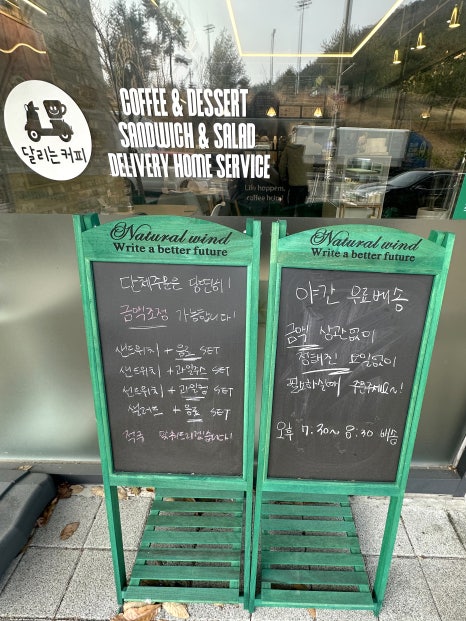 COFFEE & DESSERT
SANDWICH & SALAD
DELIVERY HOME SERVICE
달리는커피
Life happens,
coffee helps!
Natural wind
Write a better future
단체주문은 당연히!
금액조정 가능합니다!
샌드위치 + 음료 SET
샌드위치 + 과일주스 SET
샌드위치 + 과일컵 SET
샐러드 + 음료 SET
적극 맞춰드리겠습니다!
Write a better future
Natural wind
Write a better future
야간 무료배송
금액 상관없이
정해진 요일없이
필요하실때 주문주세요~!
오후 7:30~ 8:30 배송
Write a better future